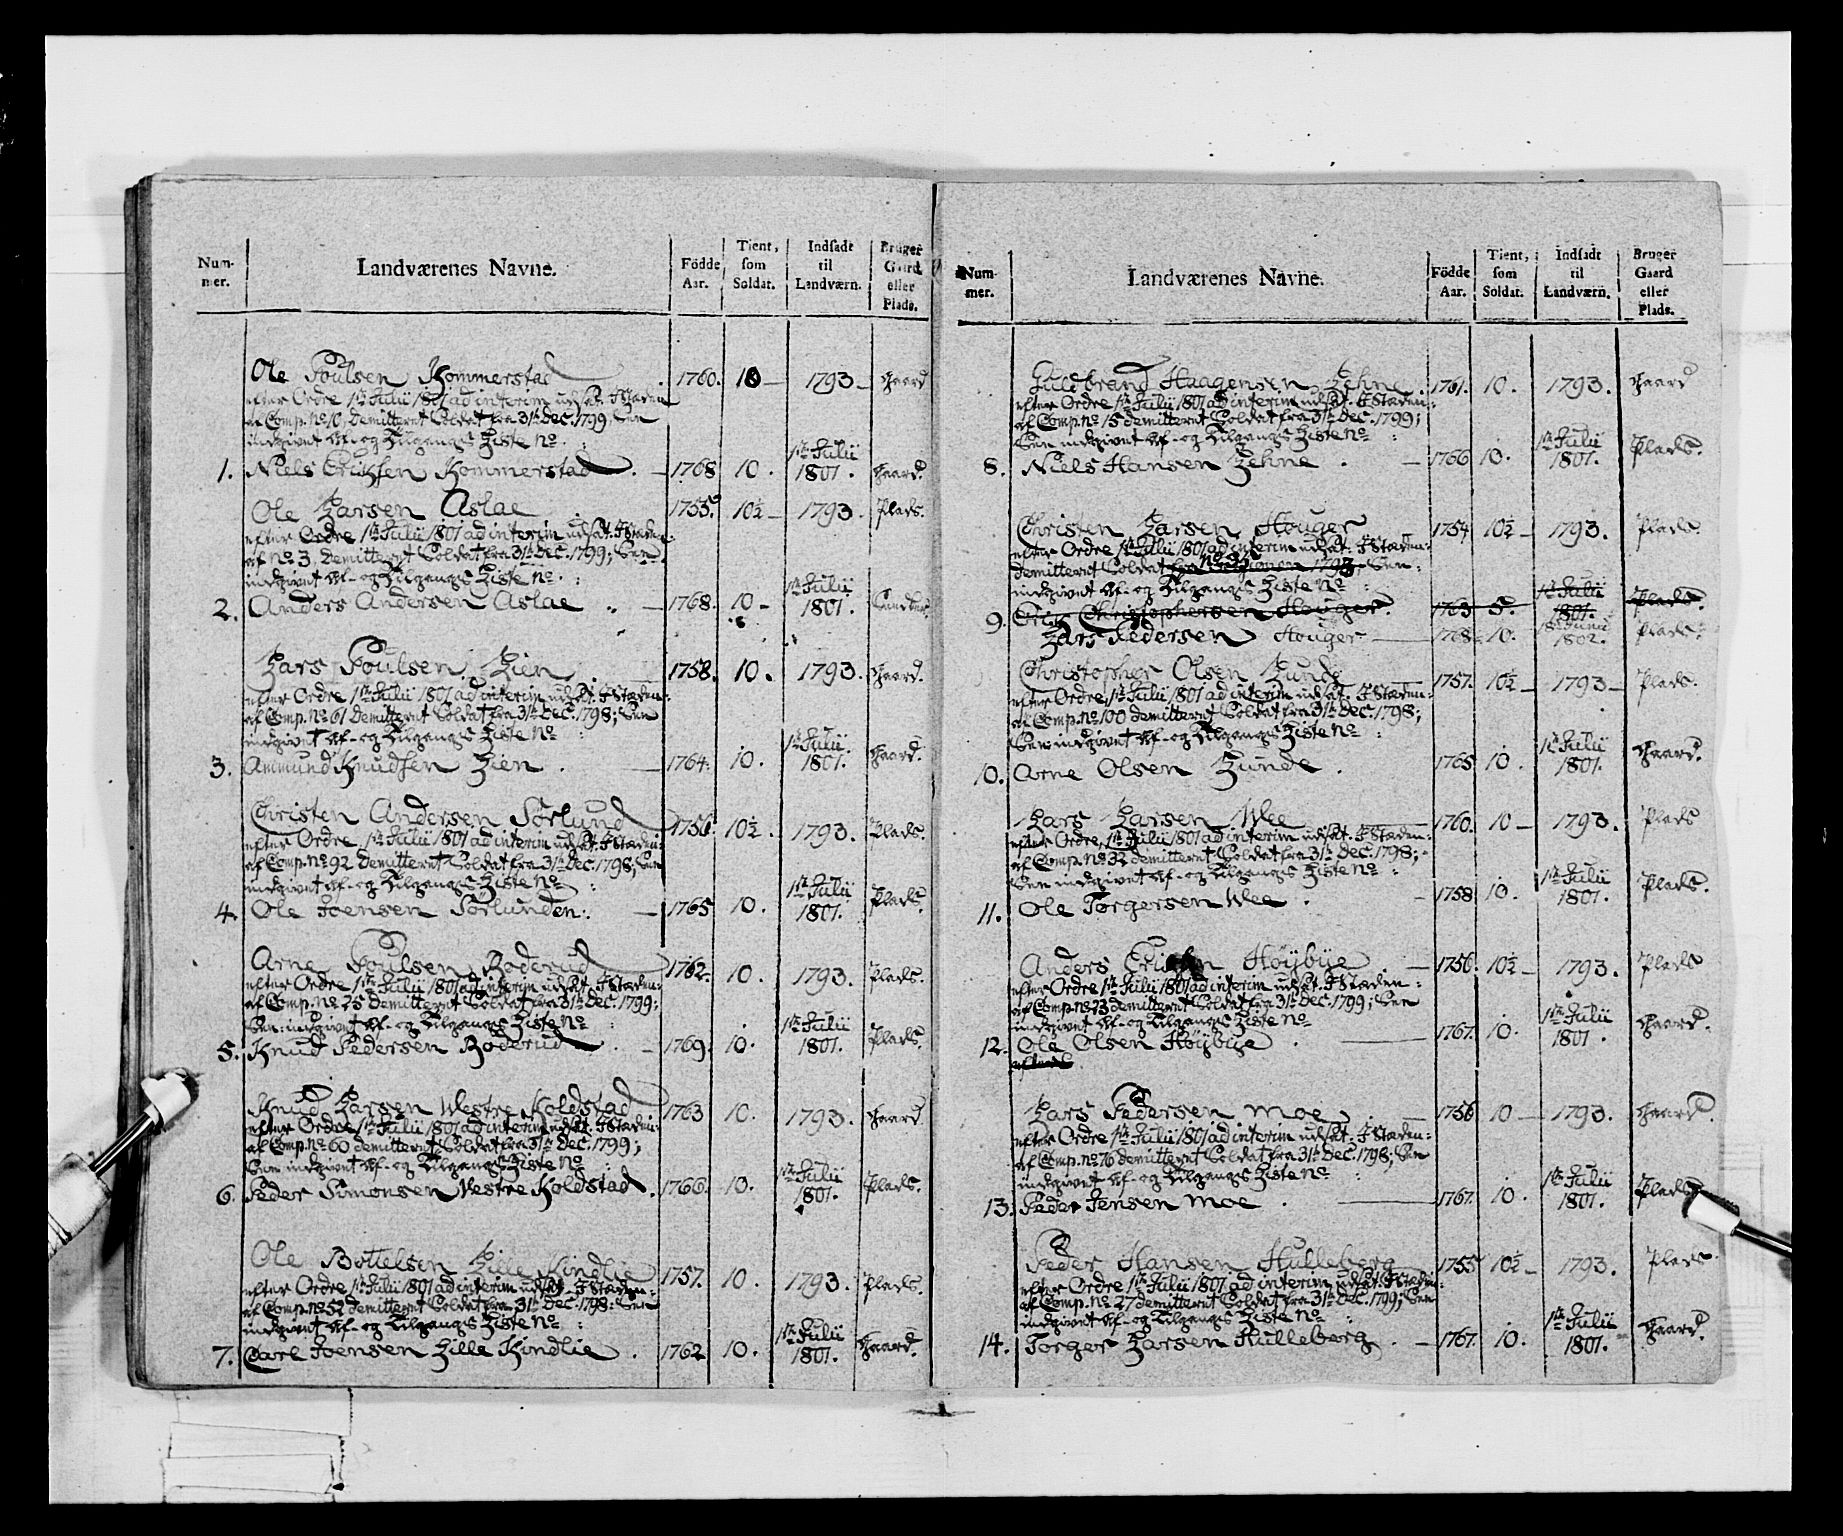 Num-
mer.
Landværenes Navne.
Födde
Aar.
Tient,
som
Soldat.
Indsadt
til
Landværn.
Bruger
Gaard
eller
Plads.
Ole Poulsen Kommerstad 1760. 10 1793 Gaard
efter Ordre 1te Julii 1801 ad interim udsat. J Stæden
af Comp. No 10, Demitteret Soldat fra 31te Dec. 1799, Een
indgivet Af- og Tilgangs Liste No
1. Niels Erichsen Kommerstad. 1768 10. 1te Julii 1801. Gaard.
Ole Larsen Aslae 1755. 10½ 1793. Plads.
efter Ordre 1te Julii 1801 ad interim udsat. J Stæden
af No 3, Demitteret Soldat fra 31te Dec. 1799; Een
indgivet Af- og Tilgangs Liste No
2. Anders Andersen Aslae 1768. 10 1te Julii 1801.
Lars Poulsen Lien 1758. 10. 1793. Gaard.
efter Ordre 1te Julii 1801 ad interim udsat. J Stæden:
af Comp. No 61 Demitteret Soldat fra 31te Dec. 1798; Een
indgivet Af- og Tilgangs Liste No
3. Ammund Knudsen Lien 1764. 10. 1te Julii 1801. Gaard.
Christen Andersen Sörlund 1756 10½. 1793. Plads.
efter Ordre 1te Julii 1801 ad interim udsat. J Stæden:
af Comp. No 92 Demitteret Soldat fra 31te Dec. 1798; Een
indgivet Af- og Tilgangs Liste No
4. Ole Joensen Sörlunden: 1765 10. 1te Julii 1801. Plads.
Arne Poulsen Boderud 1762. 10. 1793. Plads.
efter Ordre 1te Julii 1801 ad interim udsat. J Stæden:
af Comp. No 25 Demitteret Soldat fra 31te Dec. 1799;
Een indgivet Af- og Tilgangs Liste No
5. Knud Pedersen Boderud 1769. 10. 1te Julii 1801. Plads.
Knud Larsen Westre Koldstad 1763 10. 1793. Gaard
efter Ordre 1te Julii 1801 ad interim udsat. J Stæden:
af Comp. No 60 demitteret Soldat fra 31te Dec. 1799;
Een indgivet Af- og Tilgangs Liste No
6. Peder Simonsen Westre Koldstad. 1766. 10. 1te Julii 1801. Plads.
Ole Bottelsen Lille Kindlie 1757. 10. 1793. Plads.
efter Ordre 1te Julii 1801 ad interim udsat. J Stæden:
af Comp. No 52 demitteret Soldat fra 31te Dec. 1798: Een
indgivet Af- og Tilgangs Liste No:
7. Carl Joensen Lille Kindlie. 1762 10. 1te Julii 1801. Gaard.
Num-
mer.
Landværenes Navne.
Födde
Aar.
Tient,
som
Soldat.
Indsadt
til
Landværn.
Bruger
Gaard
eller
Plads.
Guldbrand Haagensen Lehne. 1761. 10. 1793. Gaard
efter Ordre 1te Julii 1801 ad interim udsat. J Stæden:
af Comp. No 15 demitteret Soldat fra 31te Dec. 1799;
Een indgivet Af- og Tilgangs Liste No
8. Niels Hansen Lehne. 1766 10. 1te Julii 1801. Plads.
Christen Larsen Houger 1754 10½ 1793. Plads.
efter Ordre 1te Julii 1801 ad interim udsat. J Stæden:
demitteret Soldat fra 1793. Een
indgivet Af- og Tilgangs Liste No
9. Eric Christophersen Houger. 1763 5. 1te Julii 1801. Plads.
Lars Pedersen Houger 1768 10. Junii 1802. Plads.
Christopher Olsen Lunde 1757. 10½ 1793 Plads.
efter Ordre 1te Julii 1801 ad interim udsat. J Stæden:
af Comp. No 100 demitteret Soldat fra 31te Dec. 1798;
Een indgivet Af- og Tilgangs Liste No
10. Arne Olsen Lunde. 1765 10. 1te Julii 1801. Gaard.
Lars Larsen Wee 1760. 10 1793. Plads
efter Ordre, 1te Julii 1801 ad interim udsat. J Stæden:
af Comp. No 32 demitteret Soldat fra 31te Dec. 1798;
Een indgivet Af- og Tilgangs Liste No
11. Ole Torgersen Wee. 1758 10. 1te Julii 1801. Plads.
Anders Höybye 1756. 10½ 1793. Plads
efter Ordre 1te Julii 1801 ad interim udsat. J Stæden:
af Comp. No 23 demitteret Soldat fra 31te Dec. 1799; Een
indgivet Af- og Tilgangs Liste No
12. Ole Olsen Höybye. 1767. 10. 1te Julii 1801. Gaard.
Lars Pedersen Moe 1756 10 1793. Gaard.
efter Ordre 1te Julii 1801 ad interim udsat. J Stæden:
af Comp. No 76 demitteret Soldat fra 31te Dec. 1798; Een
indgivet Af- og Tilgangs Liste No
13. Peder Jensen Moe. 1767. 10. 1te Julii 1801. Plads
Peder Hansen Hulleberg 1755 10½ 1793. Plads.
efter Ordre 1te Julii 1801 ad interim udsat. J Stæden:
af Comp. No 27 demitteret Soldat fra 31te Dec. 1799; Een
indgivet Af- og Tilgangs Liste No
14. Torger Larsen Hulleberg. 1767. 10. 1te Julii 1801. Gaard.